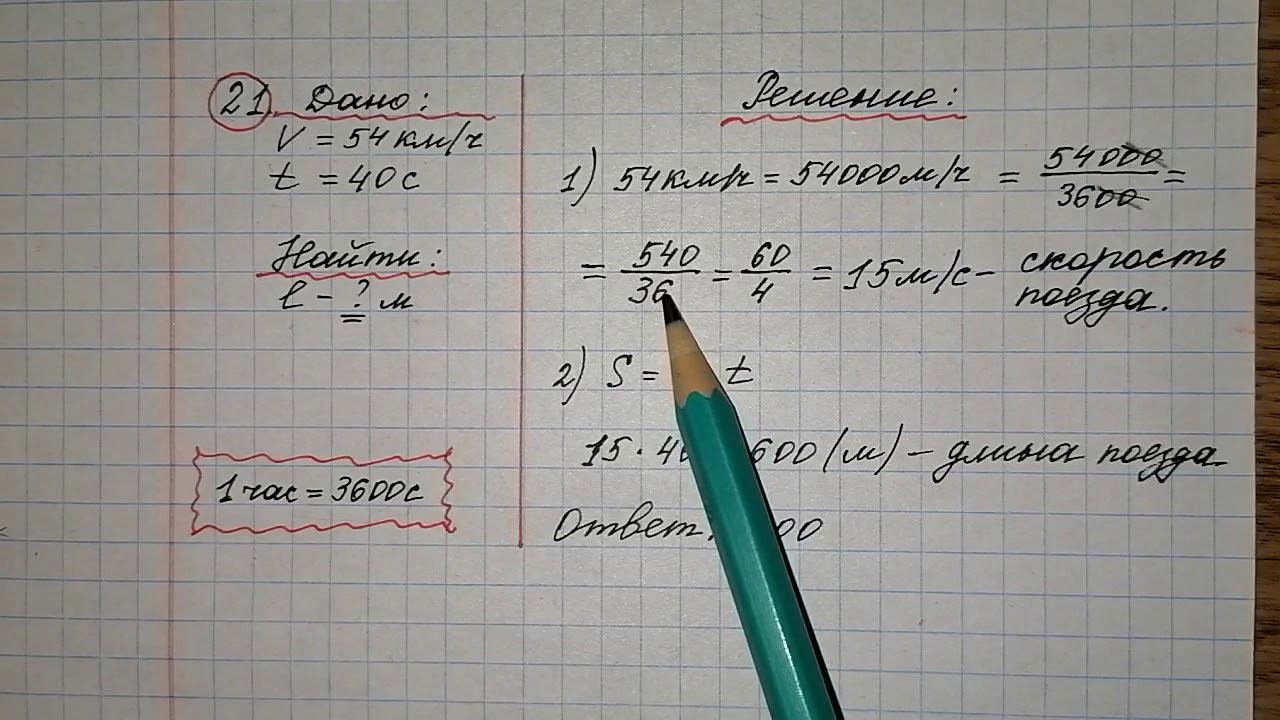 21 Дано:
V = 54 км/ч
t = 40 с
Найти:
l - ? м
1 час = 3600 с
Решение:
1) 54 км/ч = 54000 м/ч = 54000/3600 =
= 540/36 = 60/4 = 15 м/с - скорость
поезда.
2) S = t
15 · 4 600 (м) - длина поезда
Ответ. 00